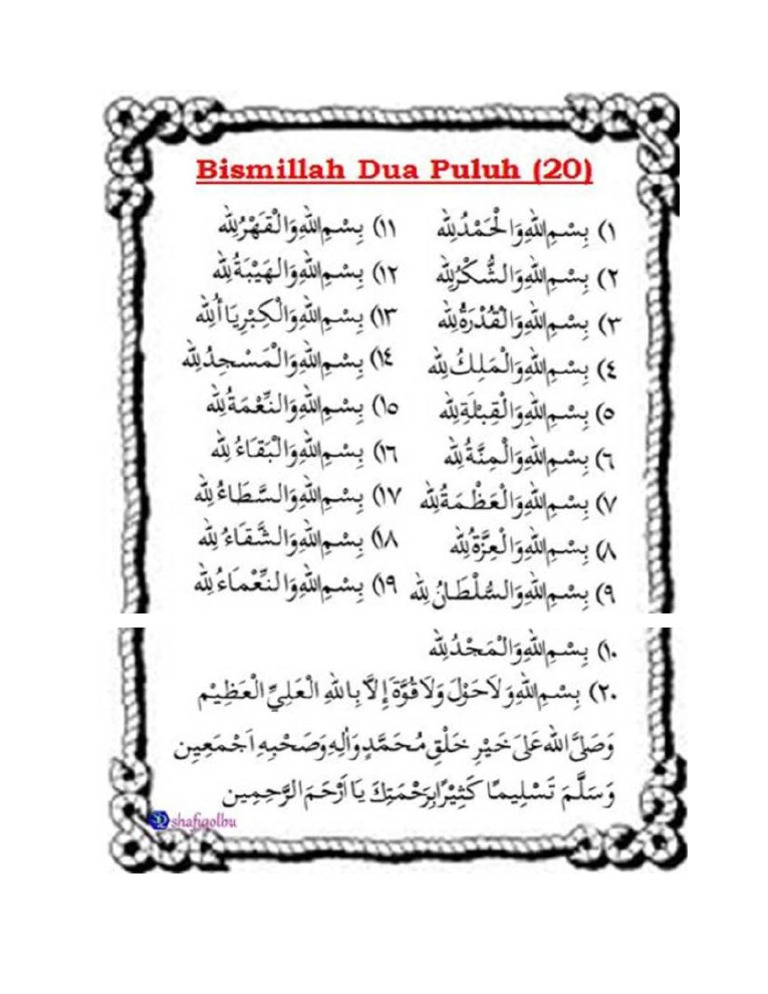 Bismillah Dua Puluh (20)
١) بِسْمِ اللهِ وَالْحَمْدُ لِلّٰهِ
١١) بِسْمِ اللهِ وَالْقَهْرُ لِلّٰهِ
٢) بِسْمِ اللهِ وَالشُّكْرُ لِلّٰهِ
١٢) بِسْمِ اللهِ وَالْهَيْبَةُ لِلّٰهِ
٣) بِسْمِ اللهِ وَالْقُدْرَةُ لِلّٰهِ
١٣) بِسْمِ اللهِ وَالْكِبْرِيَاأُ لِلّٰهِ
٤) بِسْمِ اللهِ وَالْمَلِكُ لِلّٰهِ
١٤) بِسْمِ اللهِ وَالْمَسْجِدُ لِلّٰهِ
٥) بِسْمِ اللهِ وَالْقِبْلَةِ لِلّٰهِ
١٥) بِسْمِ اللهِ وَالنِّعْمَةُ لِلّٰهِ
٦) بِسْمِ اللهِ وَالْمِنَّةُ لِلّٰهِ
١٦) بِسْمِ اللهِ وَالْبَقَاءُ لِلّٰهِ
٧) بِسْمِ اللهِ وَالْعَظْمَةُ لِلّٰهِ
١٧) بِسْمِ اللهِ وَالسَّطَاءُ لِلّٰهِ
٨) بِسْمِ اللهِ وَالْعِزَّةُ لِلّٰهِ
١٨) بِسْمِ اللهِ وَالشَّقَاءُ لِلّٰهِ
٩) بِسْمِ اللهِ وَالسُّلْطَانُ لِلّٰهِ
١٩) بِسْمِ اللهِ وَالنَّعْمَاءُ لِلّٰهِ
١٠) بِسْمِ اللهِ وَالْمَجْدُ لِلّٰهِ
٢٠) بِسْمِ اللهِ وَلَاحَوْلَ وَلَاقُوَّةَ إِلَّا بِاللهِ الْعَلِيِّ الْعَظِيْمِ
وَصَلَّى اللهُ عَلَىٰ خَيْرِ خَلْقِ مُحَمَّدٍ وَاٰلِهِ وَصَحْبِهِ اَجْمَعِيْنِ
وَسَلَّمَ تَسْلِيمًا كَثِيْرًا بِرَحْمَتِكَ يَا اَرْحَمَ الرَّحِمِيْنِ
shafiqolbu